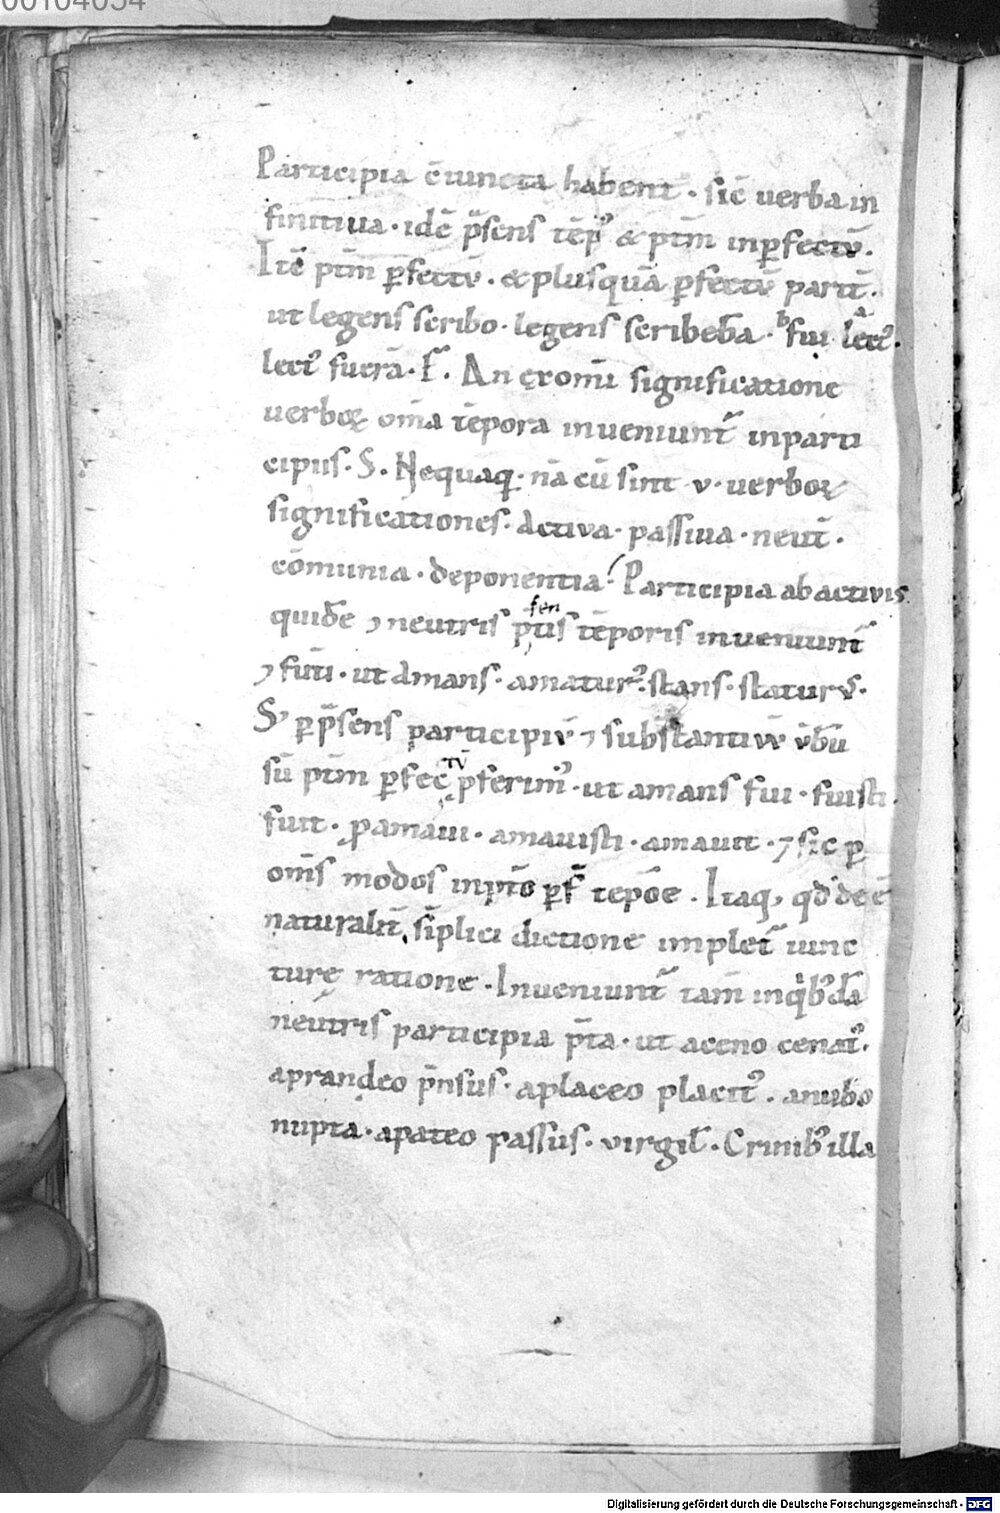 00104054
Participia c̄iuncta habent. sic̄ uerba in
finitiua. idē p̄sens tēp' & ptm̄ inp̄fectū.
Itē ptm̄ p̄fectū. & plusquā p̄fectū parit̄.
ut legens scribo. legens scribeb̄a. fui lect'.
lect' fuerā. F. An ex om̄i significatione
uerboꝝ om̄a tēpora inueniunt̄ in parti
cipiis. S. Nequaq̄. nā cū sint v. uerboꝝ
significationes. Activa. passiua. neut̄.
cōmunia. deponentia. Participia ab activis
quidē ⁊ neutris p̄tis sen tēporis inueniunt̄
⁊ futi̅. ut Amans. amatur'. stans. staturꝰ.
S; p̄ p̄sens participiū ⁊ substantiuū ūbū
sū ptm̄ p̄fectū p̄ferim'. ut amans fui. fuisti.
fuit. ꝓ amaui. amauisti. amauit. ⁊ sic̄ ꝑ
om̄s modos in pt̄o ꝑf̄ tēpōe. Itaq, qd̄ deē
naturalit̄, sīplici dictione implet̄ iunc
turę ratione. Inueniunt̄ tam̄ in qⁱb'dā
neutris participia p̄ta. ut a ceno cenat'.
a prandeo p̄nsus. a placeo placit'. a nubo
nupta. a pateo passus. virgil̄. Crinib' illa
Digitalisierung gefördert durch die Deutsche Forschungsgemeinschaft - DFG